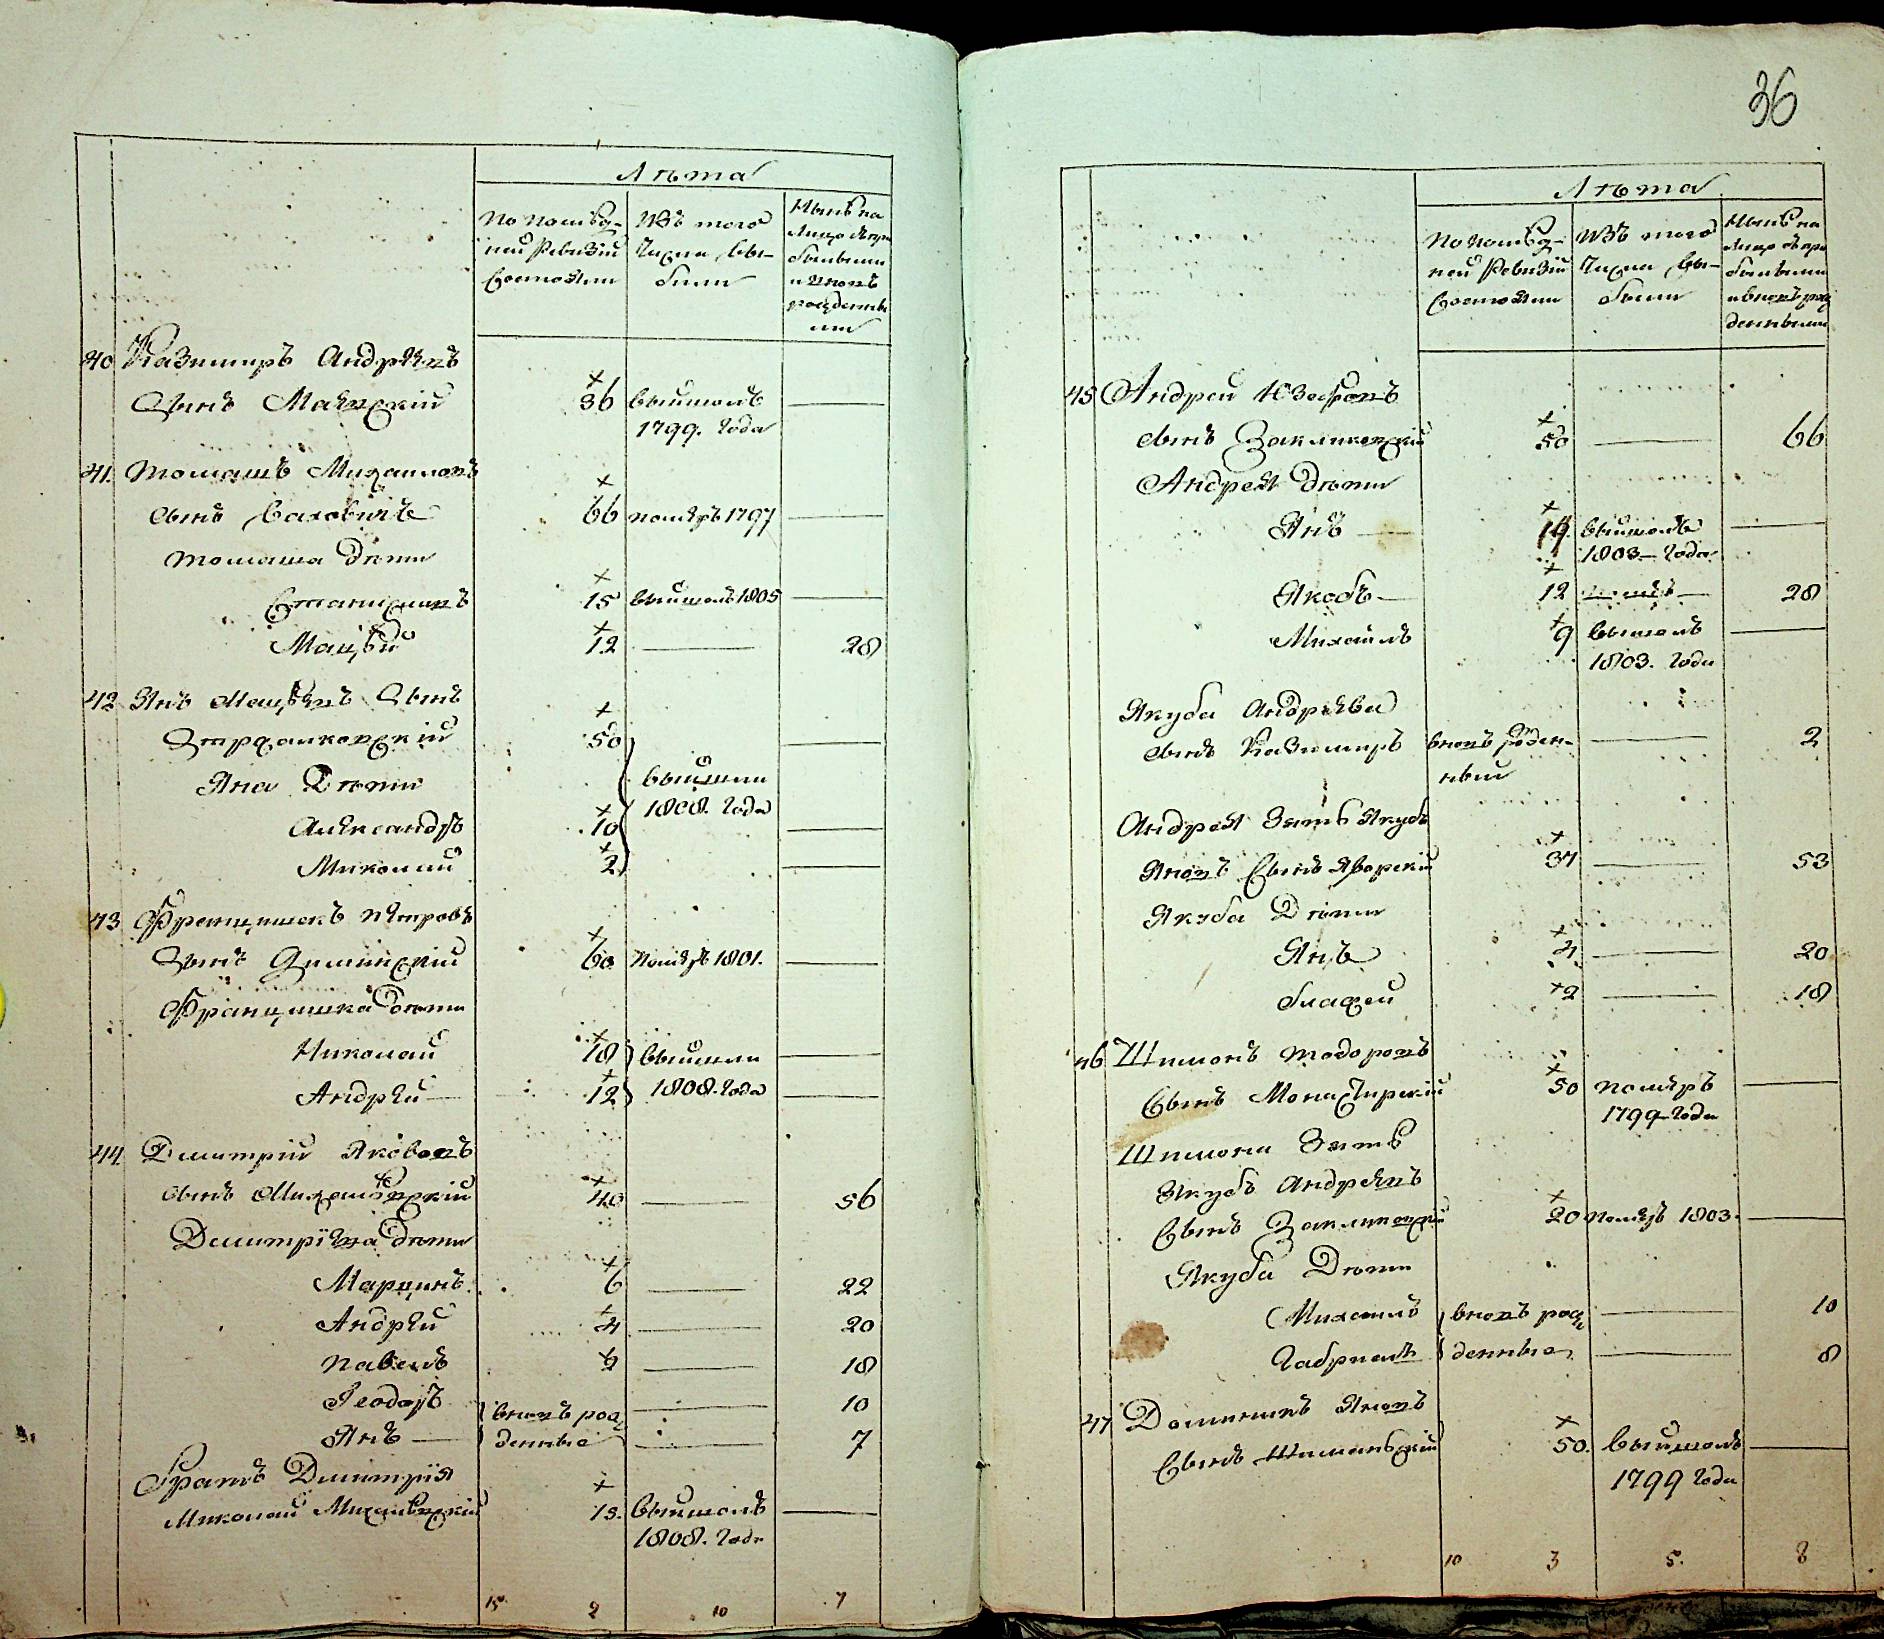 Лѣта
По послѣд-
ней Ревизіи
Состояли
Изъ того
Числа вы-
были
Нынѣ на
Лицо съ при
бывшими
и вновь
рожденны
ми
40 Казимиръ Андрѣевъ
Сынъ Маевскій 36 вышолъ
1799. Года
41. Томашъ Михаиловъ
сынъ 66 померъ 1797
Томаша Дѣти
Станиславъ 15 вышолъ 1805
Мацѣй 12 28
42 Янъ Мацѣевъ Сынъ
50
Яна Дѣти вышли
1808. Года
Александръ 10
Миколай 2
43 Францишекъ Петровъ
Сынъ 60 Померъ 1801.
Францишка Дѣти
Николай 18 вышли
Андрей 12 1808. Года
44 Дмитрій Якововъ
сынъ Михальскій 40 56
Дмитріева Дѣти
Марцинъ 6 22
Андрей 4 20
Павелъ 2 18
Теодоръ вновь рож 10
Янъ денные 7
Братъ Дмитрія
Миколай 15. вышолъ
1808. Года
15 2 10 7
36
Лѣта
По послѣд-
ней Ревизіи
Состояли
Изъ того
Числа вы-
были
Нынѣ на
Лицо съ при
бывшими
и вновь рож
денными
45 Андрей Юзефовъ
сынъ Закликовскій 50 66
Андрея Дѣти
Янъ 14 вышолъ
1803 Года
Якобъ 12 28
Михаилъ 9 вышолъ
1803. Года
Якуба Андрѣева
сынъ Казимиръ вновь рожден- 2
ный
Андрея Зять Якубъ
Яновъ Сынъ Яворскій 37 53
Якуба Дѣти
Янъ 4 20
Блажей 2 18
46 Шимонъ Тодоровъ
Сынъ Монастирскій 50 померъ
1799 Года
Шимона Зять
Якубъ Андрѣевъ
Сынъ Закликовскій 20 Померъ 1803.
Якуба Дѣти
Михаилъ вновь рож 10
Габриель денные 8
47 Доминикъ Яновъ
Сынъ Шиманьскій 50. вышолъ
1799 Года
10 3 5. 8